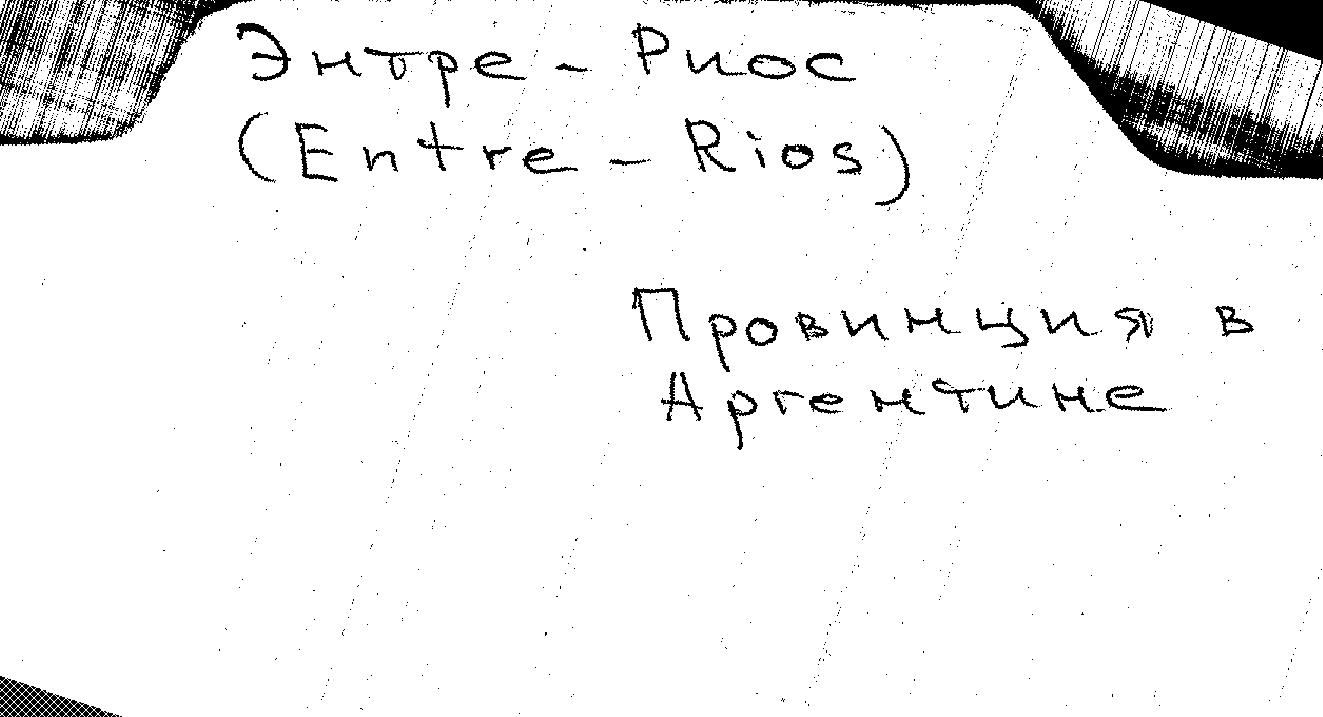 Энтре - Риос
(Entre - Rios)
Провинция в
Аргентине